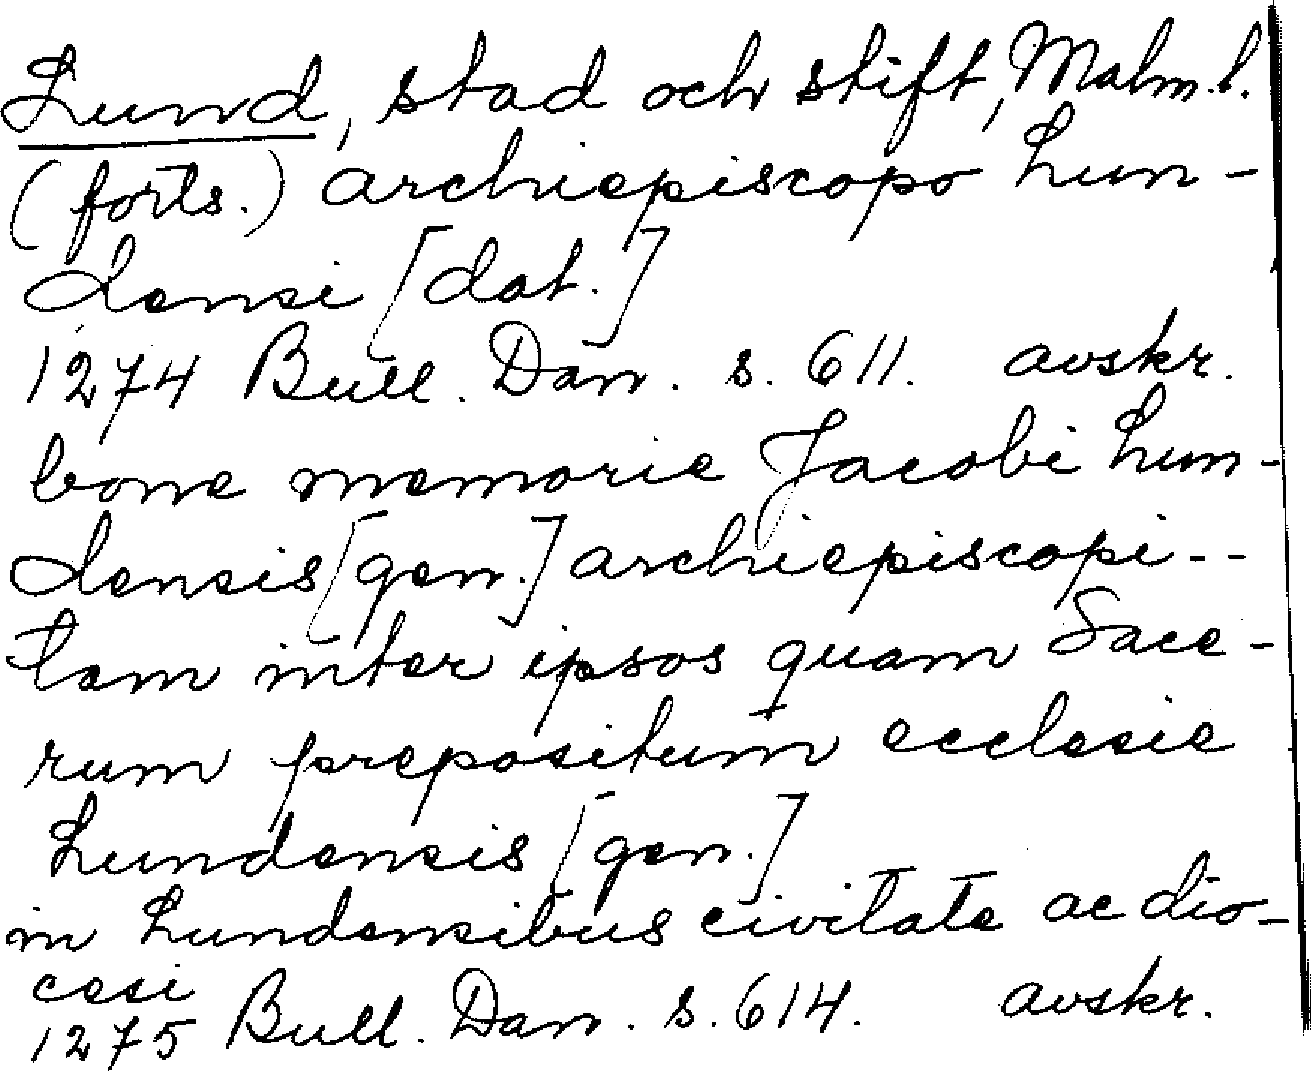 Lund, stad och stift, Malm.l.
(forts.) archiepiscopo Lun-
densi [dat.]
1274 Bull. Dan. s. 611. avskr.
bone memorie Jacobi Lun-
densis [gen.] archiepiscopi - -
tam inter ipsos quam Sace-
rum prepositum ecclesie
Lundensis [gen.]
in Lundensibus civitate ac dio-
cesi
1275 Bull. Dan. s. 614. avskr.